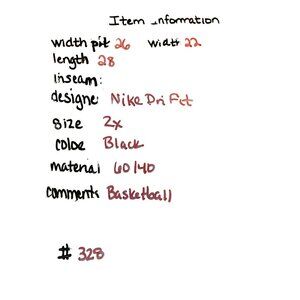 Item information
width pit 26 width 22
length 28
inseam:
designe Nike Dri Fit
size 2x
color Black
material 60/40
comments Basketball
# 328